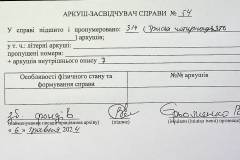 АРКУШ-ЗАСВІДЧУВАЧ СПРАВИ № 54
У справі підшито і пронумеровано: 314 (Триста чотирнадцять
) аркушів;
у т. ч.: літерні аркуші:
пропущені номери:
+ аркушів внутрішнього опису 7
Особливості фізичного стану та формування справи
№№ аркушів
(підпис)
« 6 » травня 2024